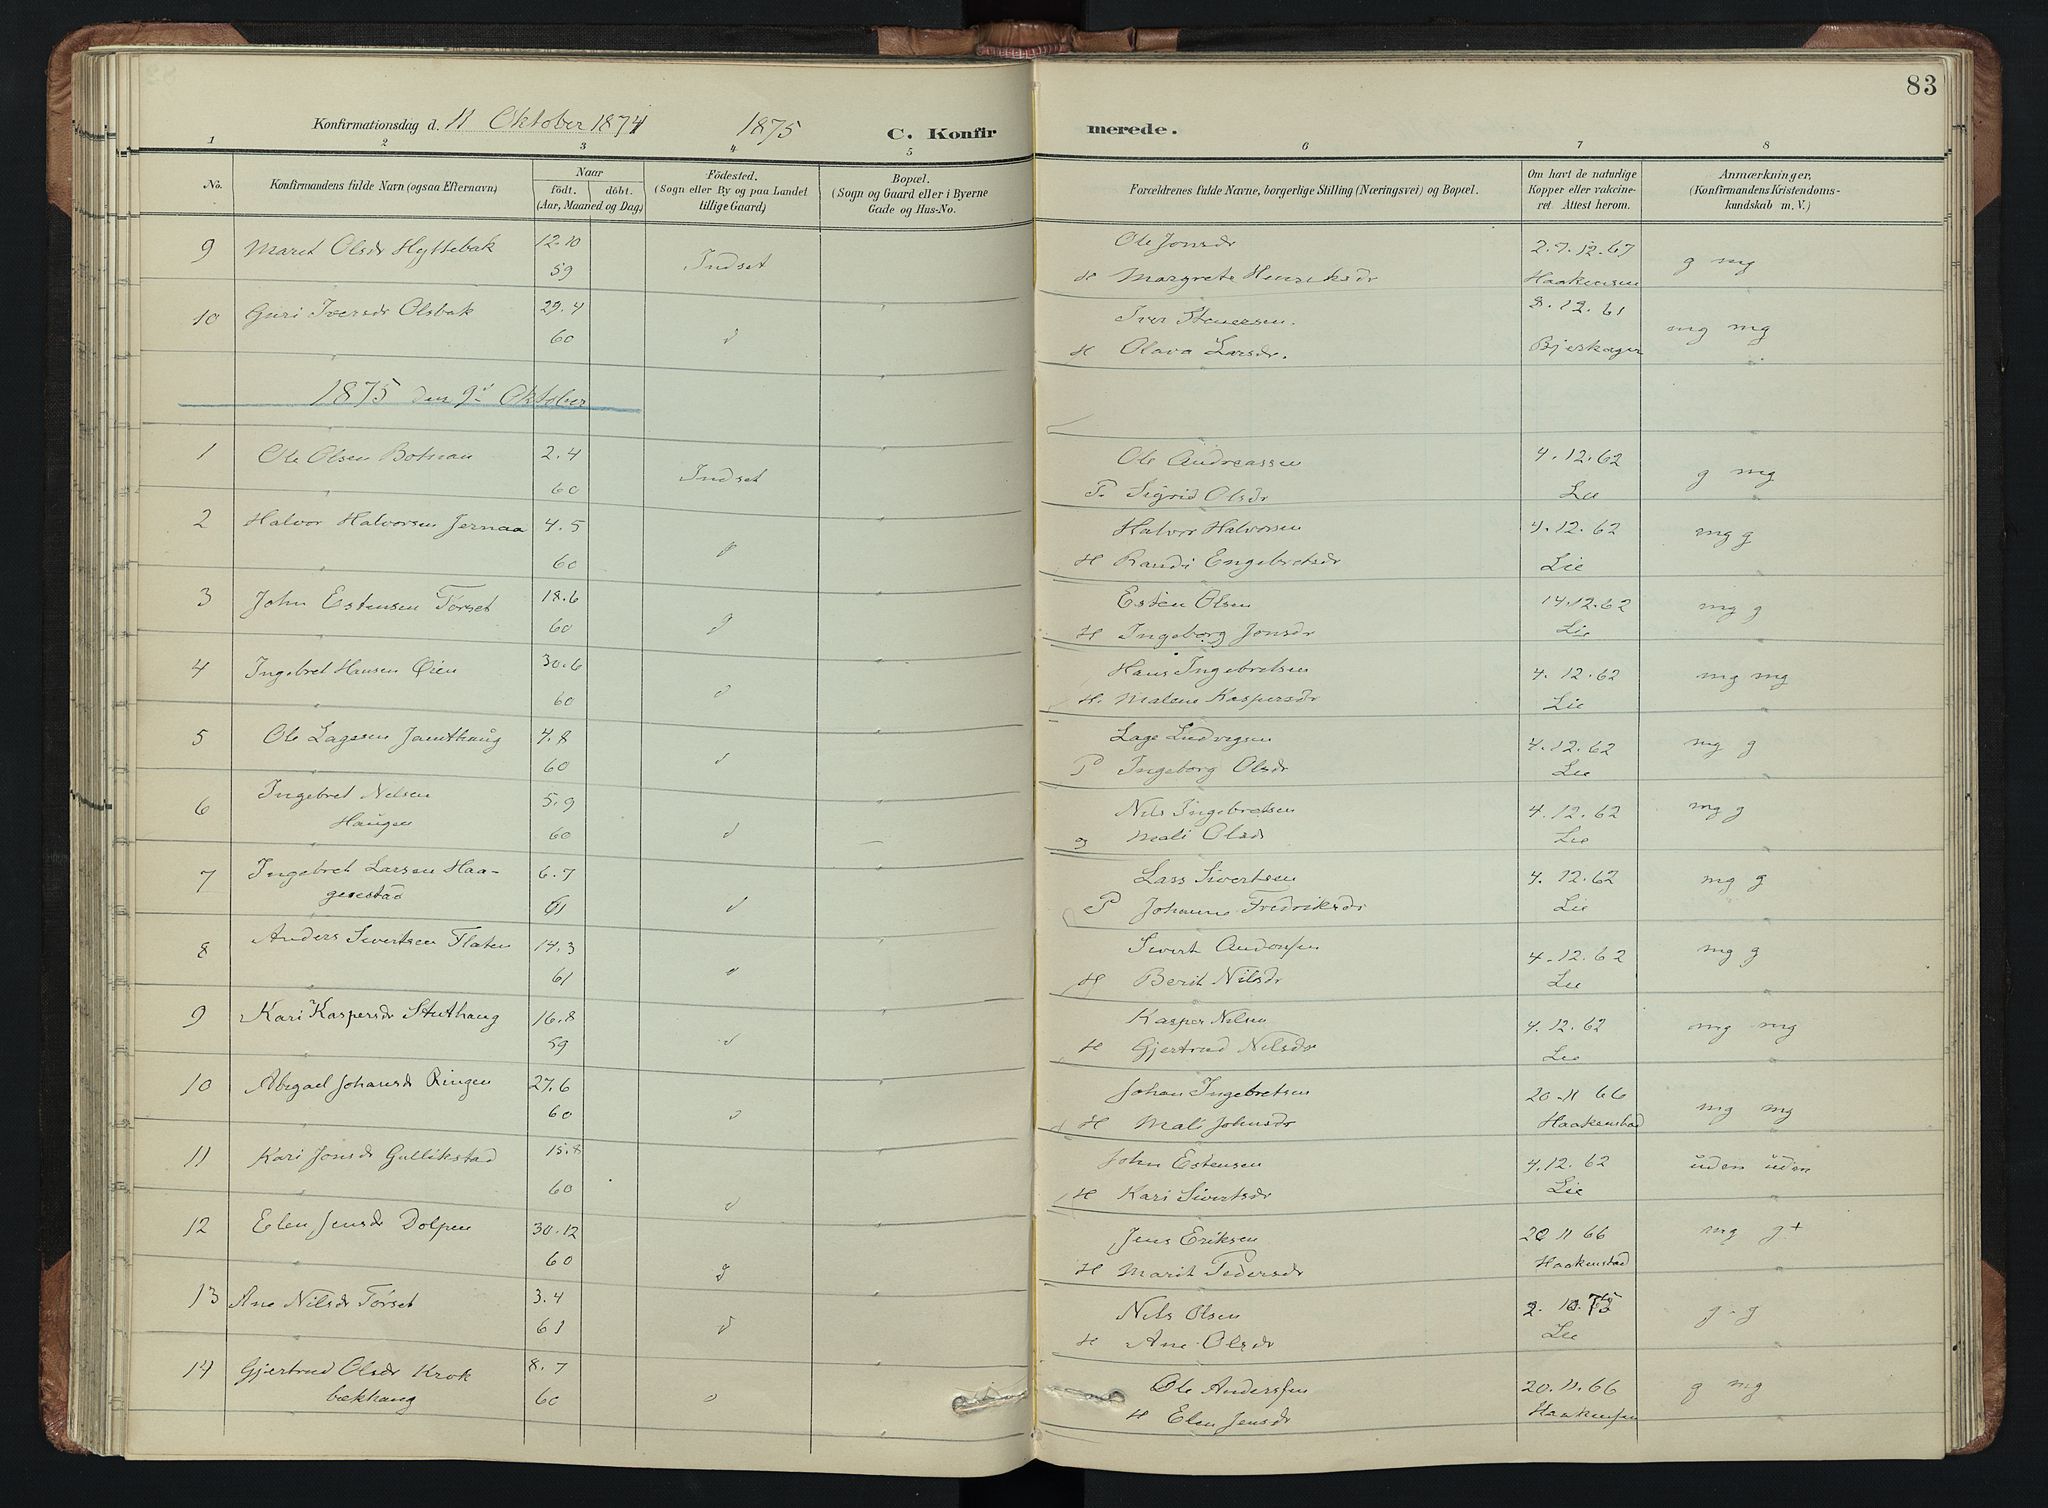 83
Konfirmationsdag d. 11 Oktober 1874 1875 C. Konfirmerede.
1 2 3 4 5 6 7 8
No. Konfirmandens fulde Navn (ogsaa Efternavn) Naar født. døbt. (Aar, Maaned og Dag) Fødested. (Sogn eller By og paa Landet tillige Gaard) Bopæl. (Sogn og Gaard eller i Byerne Gade og Hus-No. Forældrenes fulde Navne, borgerlige Stilling (Næringsvei) og Bopæl. Om havt de naturlige Kopper eller vakcineret. Attest herom. Anmærkninger, (Konfirmandens Kristendomskundskab m. V.)
9 Maret Olsdr Hyttebak 12.10 Ole Jonsdr 2.7.12.67 g mg
59 Indset H Margrete Henriksdr Haakensen
10 Guri Iversdr Olsbak 29.4 Iver Stenersen. 3.12.61 mg mg
60 d H Olava Larsdr. Bjerkager
1875 den 9de Oktober
1 Ole Olsen Botnan 2.4 Indset Ole Andreassen 4.12.62 g mg
60 P. Sigrid Olsdr Lie
2 Halvor Halvorsen Jernaa 4.5 Halvor Halvorsen 4.12.62 mg g
60 d H Randi Engebretsdr Lie
3 John Estensen Tørset 18.6 Esten Olsen 14.12.62 mg g
60 d H Ingeborg Jonsdr Lie
4 Ingebret Hansen Øien 30.6 Hans Ingebretsen 4.12.62 mg mg
60 d H. Malene Kaspersdr Lie
5 Ole Lagesen Jamthaug 4.8 Lage Ludvigsen 4.12.62 mg g
60 d P Ingeborg Olsdr Lie
6 Ingebret Nelsen 5.9 Nils Ingebretsen 4.12.62 mg g
Haugen 60 d g Mali Olsd Lie
7 Ingebret Larsen Haa- 6.7 Lars Sivertsen 4.12.62 mg g
genestad 61 d P Johanne Fredriksdr Lie
8 Anders Sivertsen Flaten 14.3 Sivert Andersen 4.12.62 mg g
61 d H Berit Nilsdr Lie
9 Kari Kaspersdr Stuthaug 16.8 Kasper Nilsen 4.12.62 mg mg
59 d H Gjertrud Nilsdr Lie
10 Abigael Johansdr Ringen 27.6 Johan Ingebretsen 20-11 66 mg mg
60 d H Mali Johnsdr Haakenstad
11 Kari Jonsdr Gullikstad 15.8 John Estensen 4.12.62 uden uden
60 d H Kari Sivertsdr Lie
12 Elen Jensdr Dolpen 30.12 Jens Eriksen 20 11 66 mg g+
60 d H Marit Pedersdr Haakenstad
13 Ane Nilsdr Tørset 3.4 Nils Olsen 2.10.75 g-g
61 d H Ane Olsdr Lie
14 Gjertrud Olsdr Krok 8.7 Ole Anderssen 20.11.66 g mg
bækhaug 60 d H Elen Jensdr Haakensen